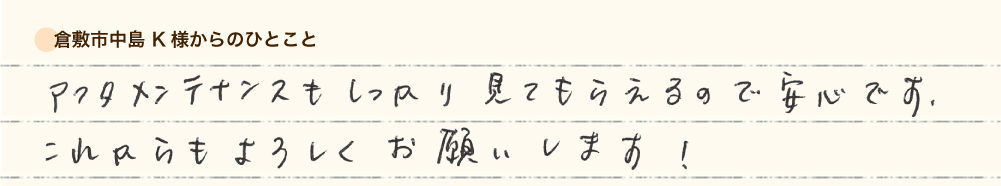 倉敷市中島 K 様からのひとこと
アフタメンテナンスもしっかり見てもらえるので安心です.
これからもよろしくお願いします!